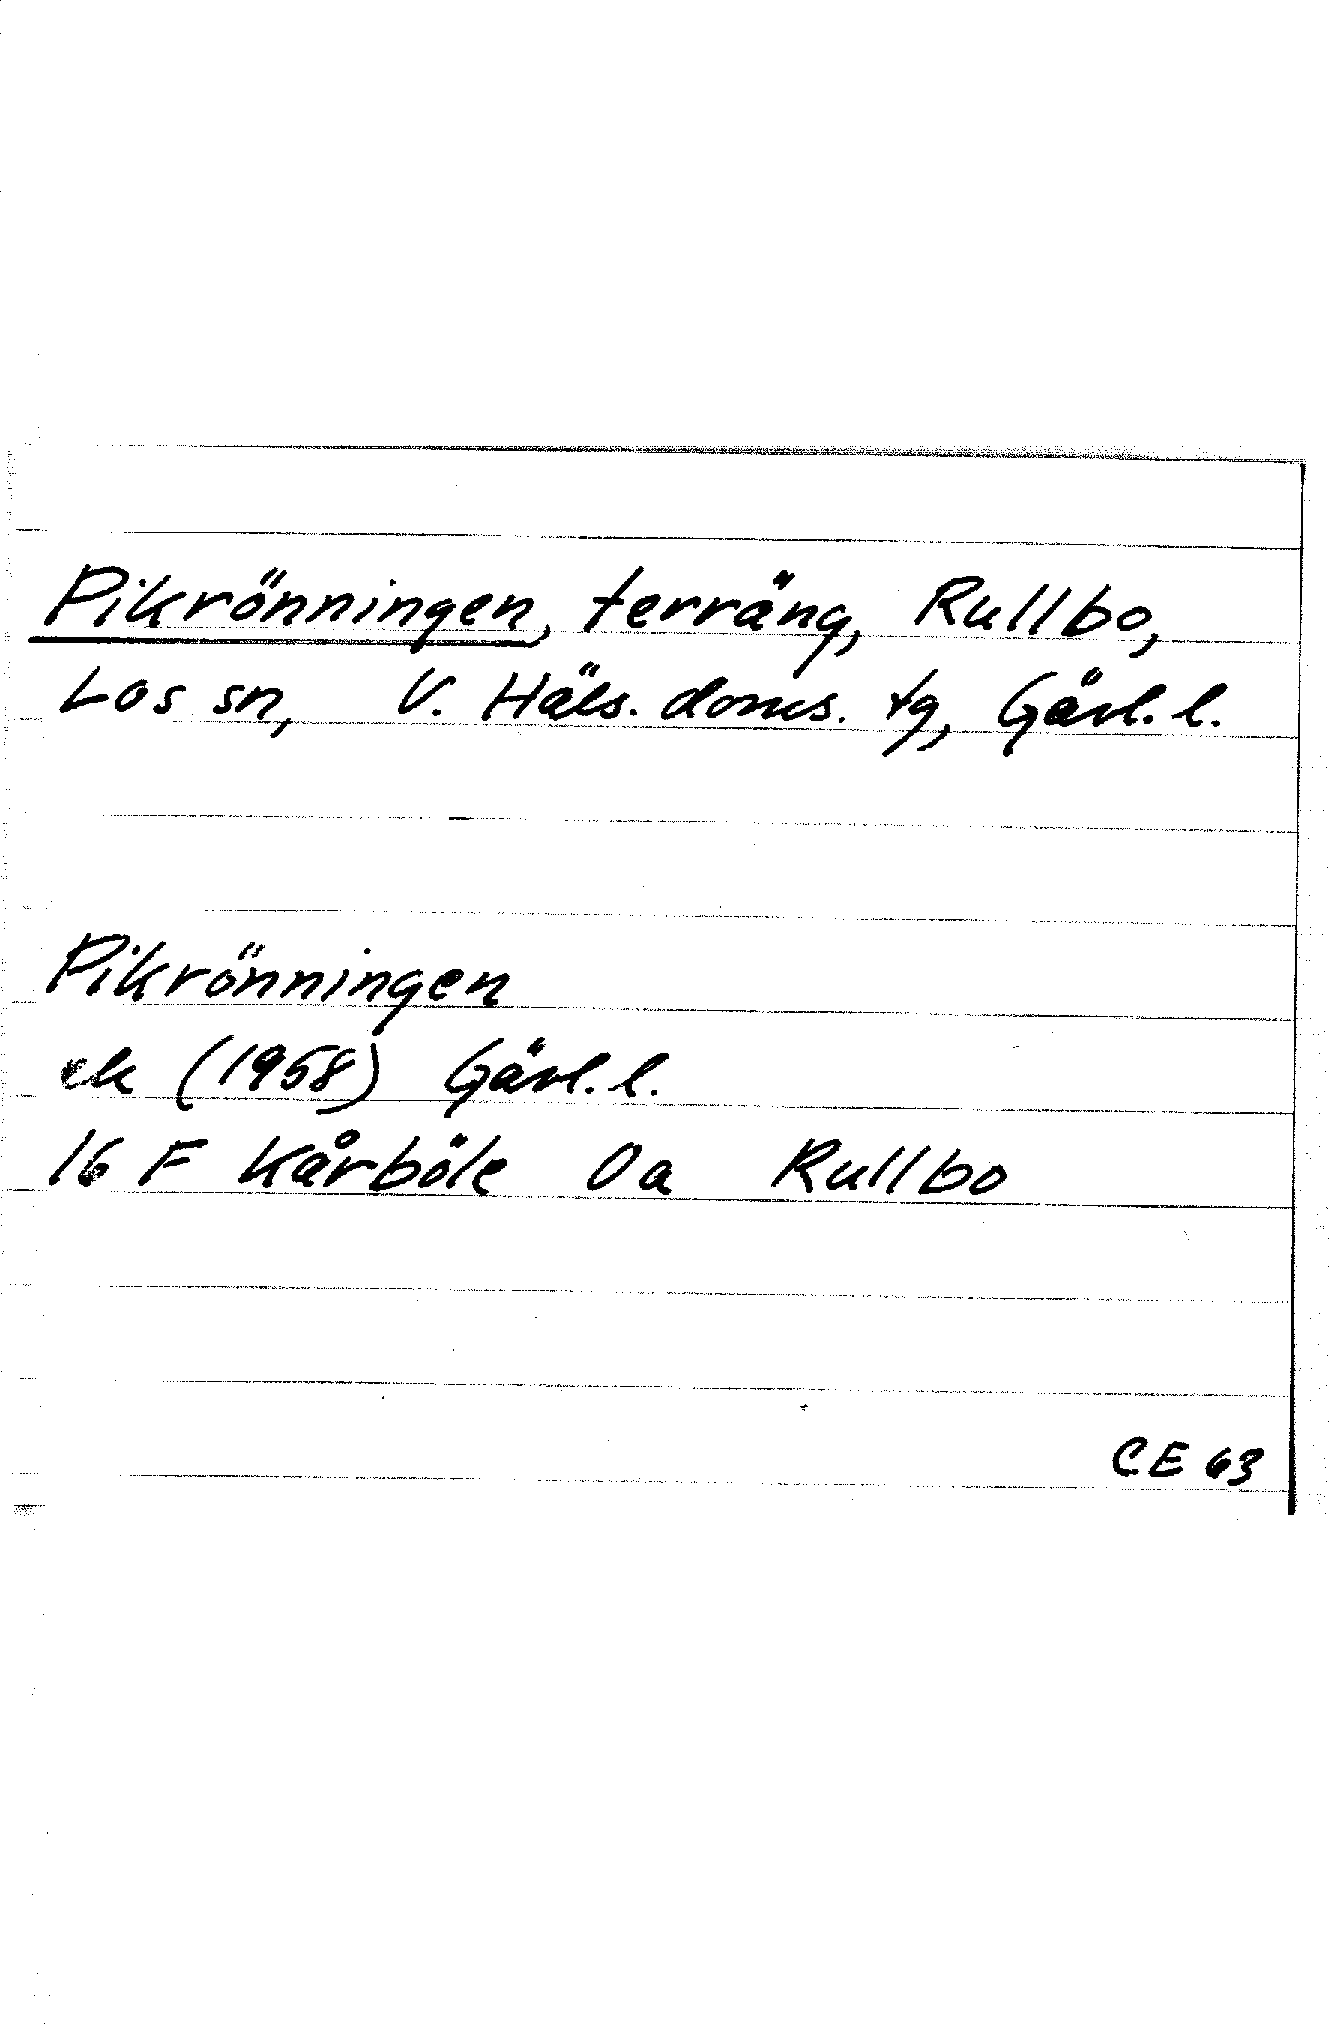 Pikrönningen, terräng, Rullbo,
Los sn, V. Häls. doms. tg, Gävl. l.
Pikrönningen
ek (1958) Gävl. l.
16 F Kårböle 0a Rullbo
CE 63